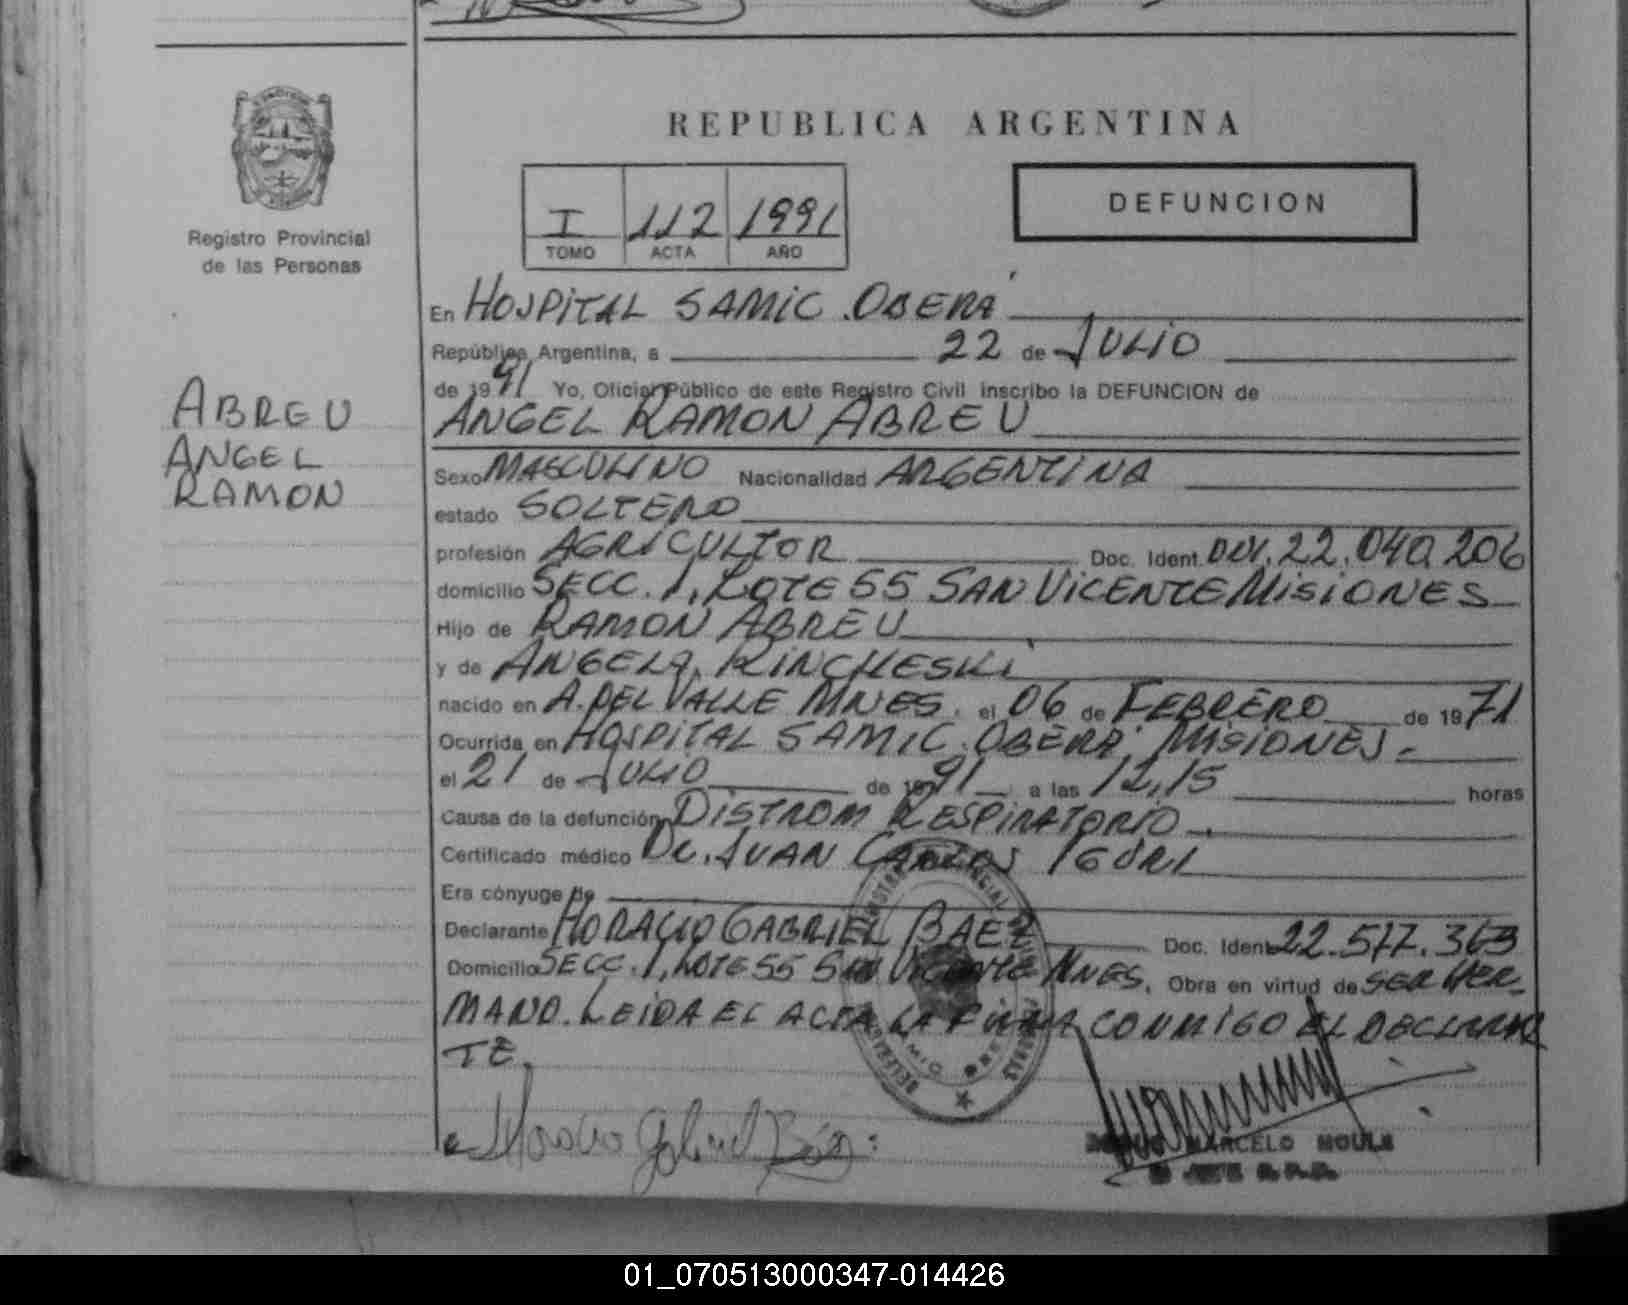 REPUBLICA ARGENTINA
I 112 1991
TOMO ACTA AÑO
DEFUNCION
Registro Provincial
de las Personas
ABREU
ANGEL
RAMON
En HOSPITAL SAMIC. OBERÁ
República Argentina, a 22 de JULIO
de 1991 Yo, Oficial Público de este Registro Civil inscribo la DEFUNCION de
ANGEL RAMON ABREU
Sexo MASCULINO Nacionalidad ARGENTINA
estado SOLTERO
profesión AGRICULTOR Doc. Ident. DNI. 22.040.206
domicilio SECC. 1, LOTE 55 SAN VICENTE MISIONES
Hijo de RAMON ABREU
y de ANGELA KINCHESKI
nacido en A. DEL VALLE MNES. el 06 de FEBRERO de 1971
Ocurrida en HOSPITAL SAMIC. OBERÁ. MISIONES.-
el 21 de JULIO de 1991 a las 12,15 horas
Causa de la defunción DISTROM RESPIRATORIO.
Certificado médico Dr. JUAN CARLOS
Era cónyuge de
Declarante HORACIO GABRIEL BAEZ Doc. Ident. 22.577.363
Domicilio SECC. 1, LOTE 55 SAN VICENTE MNES. Obra en virtud de SER HER-
MANO. LEIDA EL ACTA LA FIRMA CONMIGO EL DECLARAN
TE.
Horacio Gabriel Báez
MARCELO
01_070513000347-014426